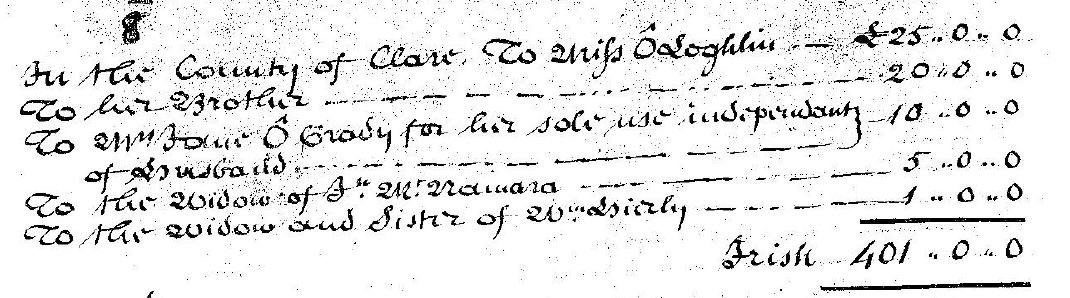 8
In the County of Clare. To Miss ÔLoghlin — £25..0..0
To her Brother — 20..0..0
To Mrs Jane ÔGrady for her sole use independant 10..0..0
of Husband
To the Widow of Jn. McNamara — 5..0..0
To the Widow and Sister of Wm — 1..0..0
Irish 401..0..0